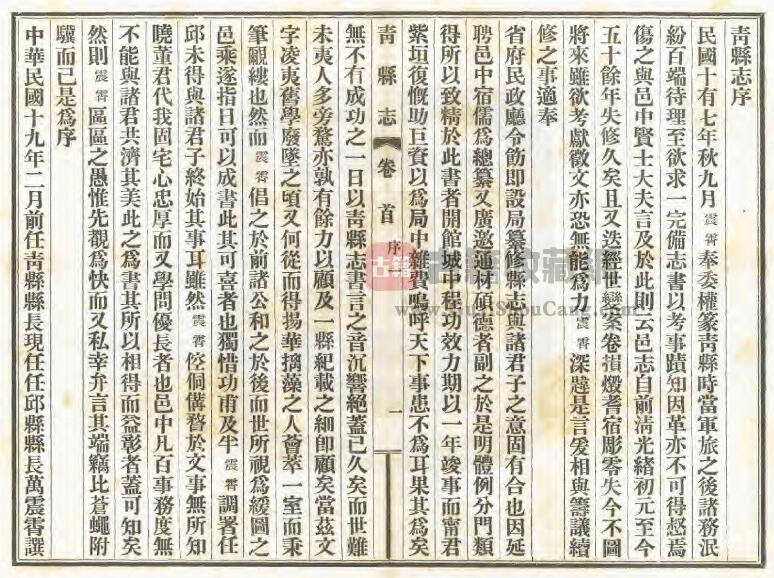 靑縣志序
民國十有七年秋九月震霄奉委權篆靑縣時當軍旅之後諸務泯
紛百端待理至欲求一完備志書以考事蹟知因革亦不可得惄焉
傷之與邑中賢士大夫言及於此則云邑志自前淸光緒初元至今
五十餘年失修久矣且又迭經世變案卷損燬耆宿彫零失今不圖
將來雖欲考獻徵文亦恐無能爲力震霄深韙是言爰相與籌議續
修之事適奉
省府民政廳令飭卽設局纂修縣志與諸君子之意固有合也因延
聘邑中宿儒爲總纂又廣邀通材碩德者副之於是明體例分門類
得所以致精於此書者開館城中程功效力期以一年竣事而甯君
紫垣復慨助巨資以爲局中雜費嗚呼天下事患不爲耳果其爲矣
靑縣志
卷首
序
一
無不有成功之一日以靑縣志書言之音沉響絕蓋已久矣而世難
未夷人多旁騖亦孰有餘力以顧及一縣紀載之細卽顧矣當茲文
字凌夷舊學廢墜之頃又何從而得揚華摛藻之人薈萃一室而秉
筆覼縷也然而震霄倡之於前諸公和之於後而世所視爲緩圖之
邑乘遂指日可以成書此其可喜者也獨惜功甫及半震霄調署任
邱未得與諸君子終始其事耳雖然震霄倥侗傋瞀於文事無所知
曉董君代我固宅心忠厚而又學問優長者也邑中凡百事務度無
不能與諸君共濟其美此之爲書其所以相得而益彰者蓋可知矣
然則震霄區區之愚惟先覩爲快而又私幸弁言其端竊比蒼蠅附
驥而已是爲序
中華民國十九年二月前任靑縣縣長現任任邱縣縣長萬震霄譔
古籍